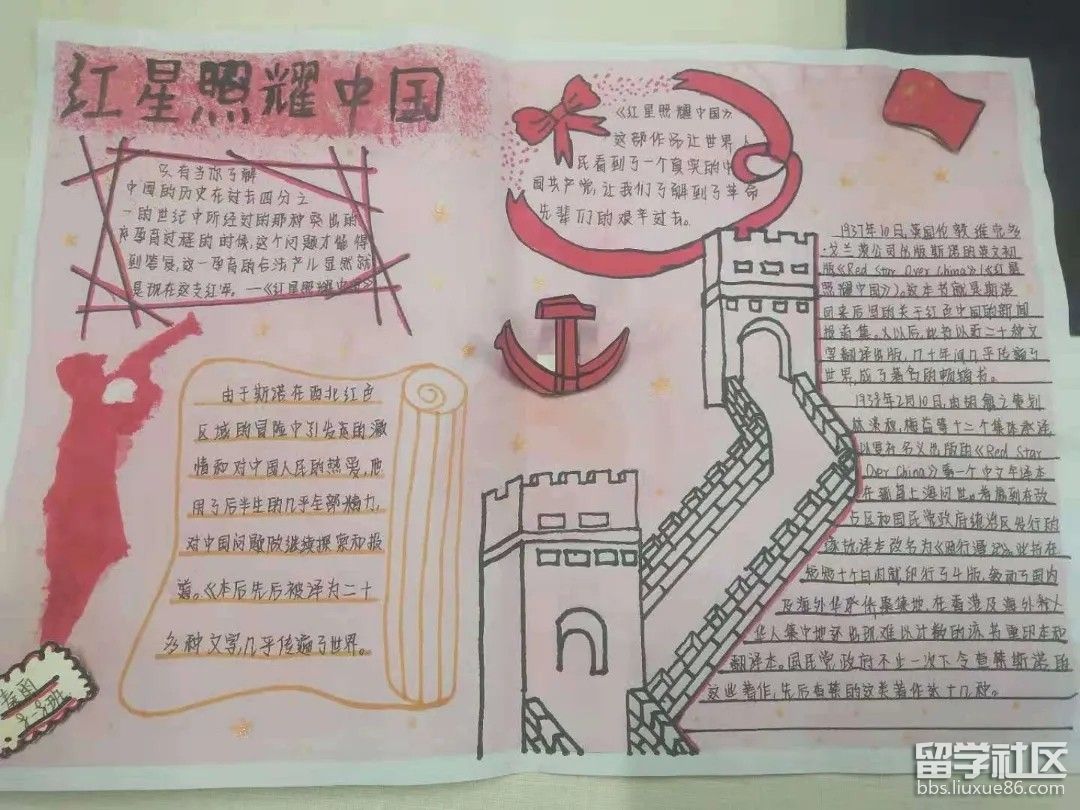 红星照耀中国
只有当你了解
中国的历史在过去四分之
一的世纪中所经过的那种突出的
孕育过程的时候,这个问题才能得
到答复,这一孕育的合法产儿显然就
是现在这支红军。—《红星照耀中国》
由于斯诺在西北红色
区域的冒险中引发范的激
情和对中国人民的热爱,他
用了后半生的几乎全部精力,
对中国问题做继续探索和报
道。《本后先后被译为二十
多种文字,几乎传遍了世界。
《红星照耀中国》
这部作品让世界人
民看到了一个真实的中
国共产党,让我们了解到了革命
先辈们的艰辛过去。
1937年10月,英国伦敦维克多
·戈兰茨公司出版斯诺的英文初
版《Red Star Over China》(《红星
照耀中国》)。这本书就是斯诺
回来后写的关于红色中国的新闻
报道集。从以后,此书以近二十种文
字翻译出版,几十年间几乎传遍了
世界,成了著名的畅销书。
1938年2月10日,由胡愈之策划
林淡秋,梅益等十二个集体承译
以复社名义出版的《Red Star
Over China》第一个中文年译本
在 上海问世。考虑到在敌
占区和国民党政府统治区发行的
该书译本改名为《西行漫记》。此书在
短短十个月内就印行了4版,轰动了国内
及海外华侨传聚集地在香港及海外
华人集中地还出现难以计数的该书重印本和
翻译本。国民党政府不止一次下令查禁斯诺的
这些著作,先后查禁的这类著作达十几种。
留学社区
bbs.liuxue86.com